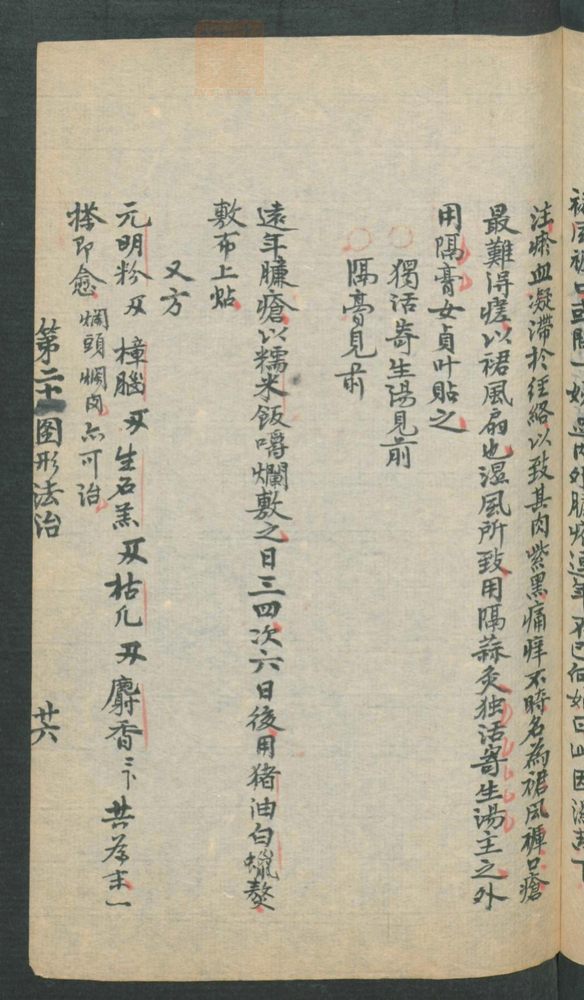 注瘀血凝滯於経絡以致其肉紫黑痛痒不時名為裙風褲口瘡
最難得瘥以裙風扇也濕風所致用隔蒜灸独活寄生湯主之外
用隔膏女貞叶貼之
獨活寄生湯見前
隔膏見前
遠年臁瘡以糯米飯嚼爛敷之日三四次六日後用猪油白蠟熬
敷布上贴
又方
元明粉 樟腦 生石羔 枯凡 麝香 共為末一
搽即愈 爛頭爛肉亦可治
第二十一图形法治
廿六